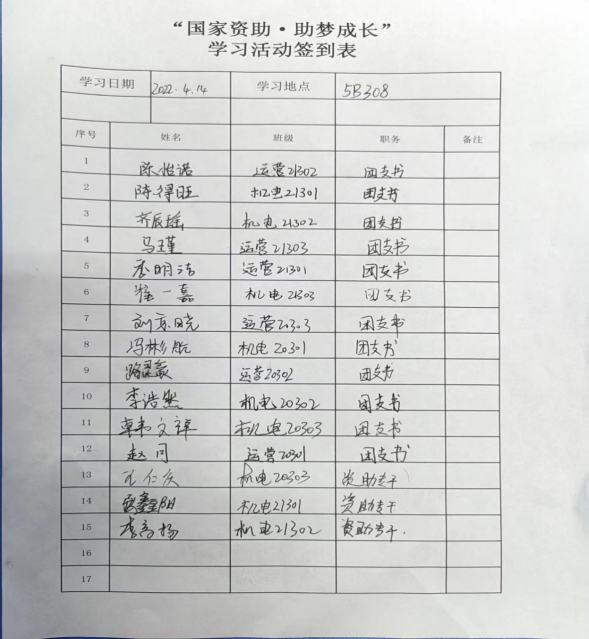 “国家资助·助梦成长”
学习活动签到表
学习日期 2022.4.14 学习地点 5B308
序号 姓名 班级 职务 备注
1 陈怡诺 运营21302 团支书
2 陈得旺 机电21301 团支书
3 机电21302 团支书
4 马瑾 运营21303 团支书
5 李明洁 运营21301 团支书
6 崔一嘉 机电21303 团支书
7 刘京晓 运营20303 团支书
8 冯彬航 机电20301 团支书
9 运营20302 团支书
10 李浩然 机电20302 团支书
11 韩文祥 机电20303 团支书
12 赵同 运营20301 团支书
13 孔仁庆 机电20303 资助专干
14 机电21301 资助专干
15 李高扬 机电21302 资助专干.
16
17